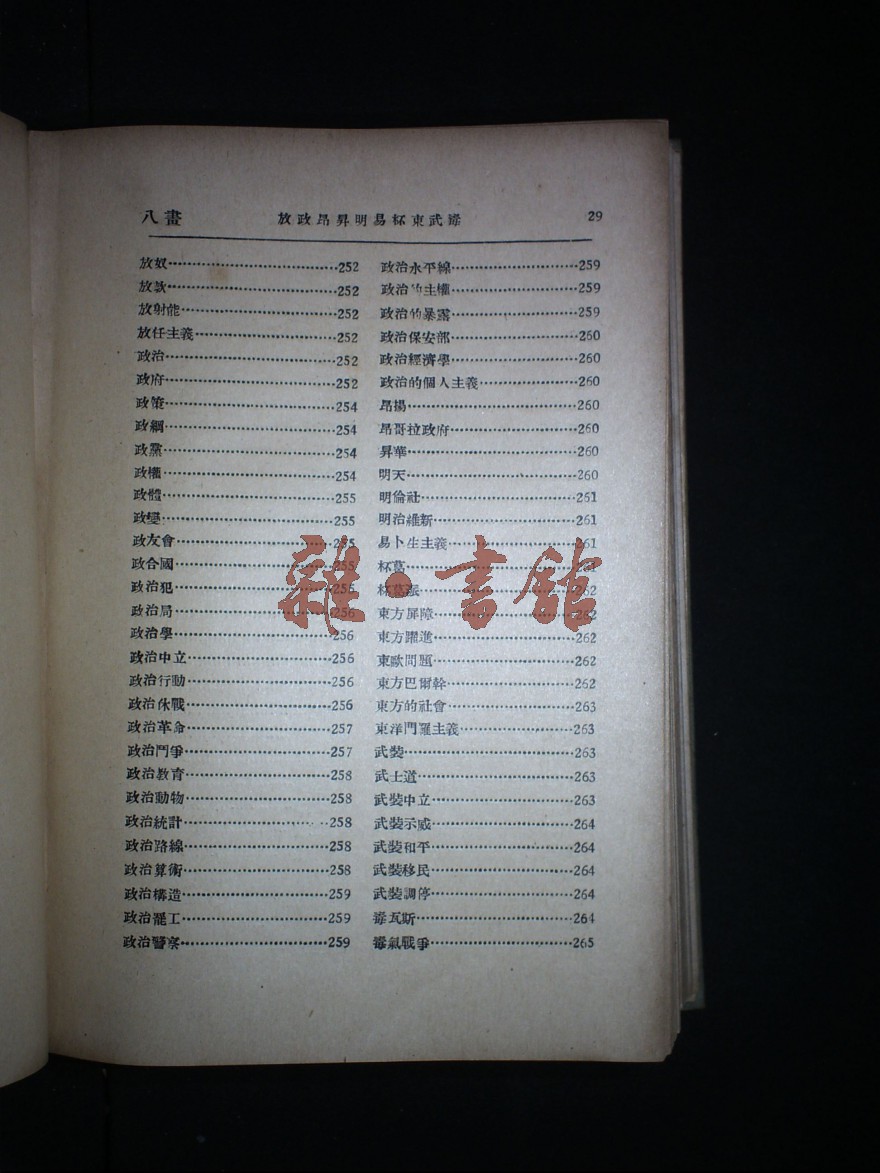 八畫 放政昂昇明易杯東武毒 29
放奴 252
放款 252
放射能 252
放任主義 252
政治 252
政府 252
政策 254
政綱 254
政黨 254
政權 254
政體 255
政變 255
政友會 255
政合國 255
政治犯 255
政治局 256
政治學 256
政治中立 256
政治行動 256
政治休戰 256
政治革命 257
政治鬥爭 257
政治教育 258
政治動物 258
政治統計 258
政治路線 258
政治算術 258
政治構造 259
政治罷工 259
政治警察 259
政治水平線 259
政治的主權 259
政治的暴露 259
政治保安部 260
政治經濟學 260
政治的個人主義 260
昂揚 260
昂哥拉政府 260
昇華 260
明天 260
明倫社 261
明治維新 261
易卜生主義 261
杯葛
杯葛派 262
東方屏障 262
東方躍進 262
東歐問題 262
東方巴爾幹 262
東方的社會 263
東洋門羅主義 263
武裝 263
武士道 263
武裝中立 263
武裝示威 264
武裝和平 264
武裝移民 264
武裝調停 264
毒瓦斯 264
毒氣戰爭 265
雜·書館